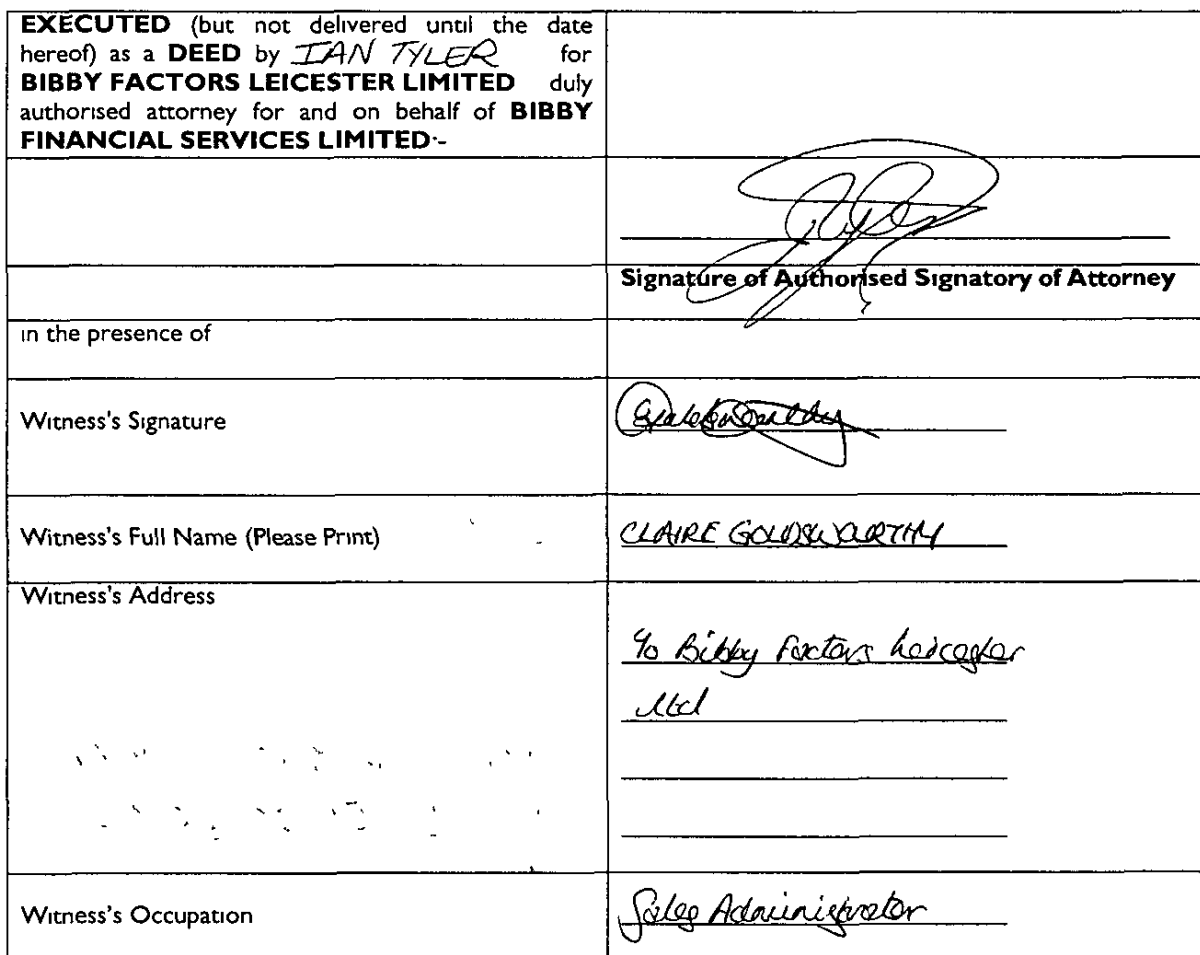 EXECUTED (but not delivered until the date
hereof) as a DEED by IAN TYLER for
BIBBY FACTORS LEICESTER LIMITED duly
authorised attorney for and on behalf of BIBBY
FINANCIAL SERVICES LIMITED:-
Signature of Authorised Signatory of Attorney
in the presence of
Witness's Signature
Witness's Full Name (Please Print) CLAIRE GOLDSWARTHY
Witness's Address
c/o Bibby Factors Leicester
Ltd
Witness's Occupation Sales Administrator